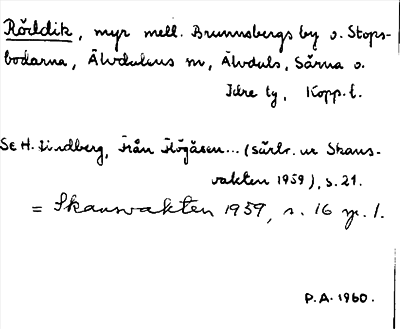 Röeldik, myr mell. Brunnsbergs by o. Stops-
bodarna, Älvdalens sn, Älvdals, Särna o.
Idre tg, Kopp. l.
Se H. Lindberg, Från Högåsen... (särtr. ur Skans-
vakten 1959), s. 21.
= Skansvakten 1959, s. 16 sp. 1.
P.A. 1960.